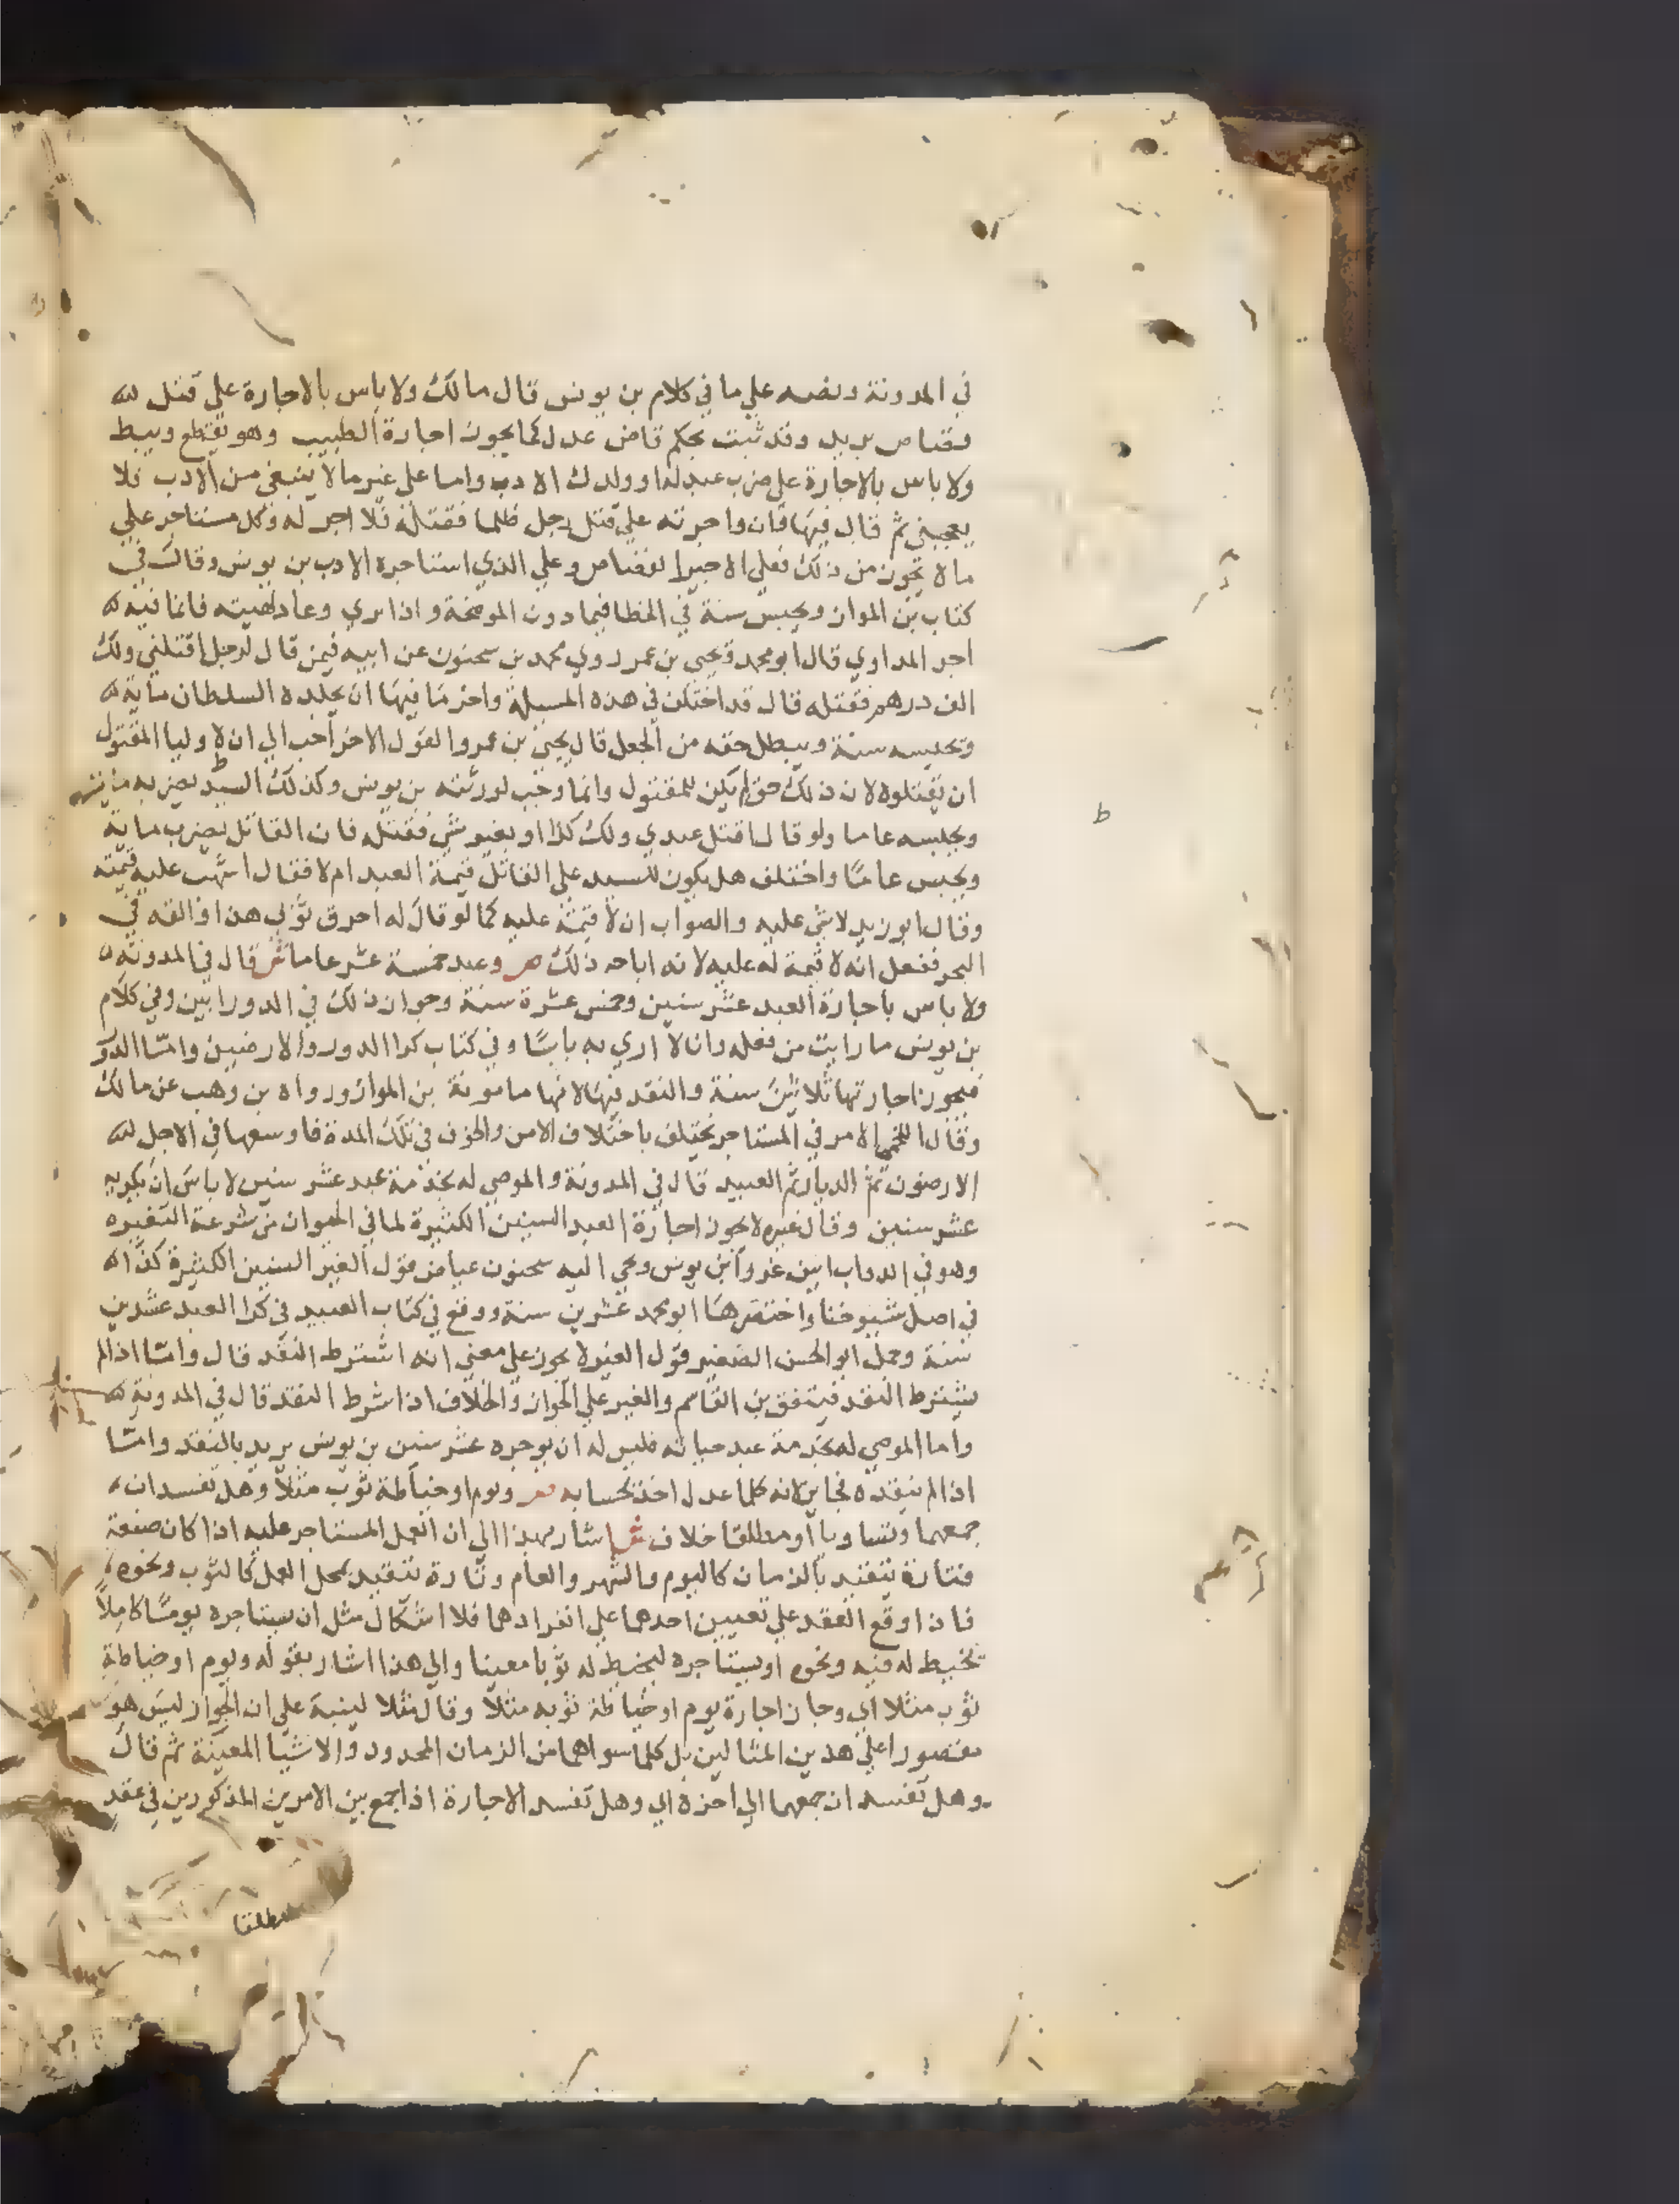 في المدونة ونصه علي ما في كلام بن يونس قال مالك ولا باس بالاجارة علي قتل
قصاص يريد وقد ثبت بحكم قاض عدل كما يجوز اجارة الطبيب وهو يقطع ويبط
ولا باس بالاجارة علي ضرب عبدك او ولدك الادب واما علي غير ما لا ينبغي من الادب فلا
يعجبني ثم قال فيها فان واجرته علي قتل رجل ظلما فقتله فلا اجر له وكل مستاجر علي
ما لا يجوز من ذلك فعلي الاجير القصاص وعلي الذي استاجره الادب بن يونس وقال في
كتاب بن المواز ويحبس سنة في الخطا فيما دون الموضحة واذا بري وعاد لهيته فانما فيه
اجر المداوي قال ابو محمد ويحيي بن عمر روي محمد بن سحنون عن ابيه فيمن قال لرجل اقتلني ولك
الف درهم فقتله قال قد اختلف في هذه المسيلة واخر ما فيها ان يجلده السلطان ماية
ويحبسه سنة ويبطل حقه من الجعل قال يحيي بن عمر والقول الاخر احب الي ان لاوليا المقتول
ان يقتلوه لان ذلك حق لم يكن للمقتول وانما وجب لورثته بن يونس وكذلك السيد يضربه
ويحبسه عاما ولو قال اقتل عبدي ولك كذا او بغير شي فقتله فان القاتل يضرب ماية
ويحبس عاما واختلف هل يكون للسيد علي القاتل قيمة العبد ام لا فقال اشهب عليه قيمته
وقال ابو زيد لا شي عليه والصواب ان لا قيمة عليه كما لو قال له احرق ثوبي هذا او القه في
البحر ففعل انه لا قيمة له عليه لانه اباحه ذلك ص وعبد خمسة عشر عاما ش قال في المدونة
ولا باس باجارة العبد عشر سنين وخمس عشرة سنة وجواز ذلك في الدور ابين وفي كلام
بن يونس ما رايت من فعله وانا لا اري به باسا وفي كتاب كرا الدور والارضين واما الدور
فيجوز اجارتها ثلاثين سنة والنقد فيها لانها مامونة بن المواز ورواه بن وهب عن مالك
وقال اللخمي الامر في المستاجر يختلف باختلاف الامن والخوف في تلك المدة فاوسعها في الاجل
الارضون ثم الديار ثم العبيد قال في المدونة والموصي له بخدمة عبد عشر سنين لا باس ان يكريه
عشر سنين وقال غيره لا يجوز اجارة العبد السنين الكثيرة لما في الحيوان من سرعة التغيره
وهو في الدواب ابين غررا بن يونس وحي اليه سحنون عياض قول الغير السنين الكثيرة كذا
في اصل شيوخنا واختصرها ابو محمد عشرين سنة ووقع في كتاب العبيد في كرا العبد عشرين
سنة وحمل ابو الحسن الصغير قول الغير لا يجوز علي معني انه اشترط النقد قال واما اذا لم
يشترط النقد فيتفق بن القاسم والغير علي الجواز والخلاف اذا شرط النقد قال في المدونة
واما الموصي له بخدمة عبد حياته فليس له ان يوجره عشر سنين بن يونس يريد بالنقد واما
اذا لم ينقده فجايز لانه كلما عدل اخذ بحسابه ص ويوم او خياطة ثوب مثلا وهل تفسد ان
جمعهما وتساويا او مطلقا خلاف ش اشار بهذا الي ان العمل المستاجر عليه اذا كان صنعة
فتارة يتقيد بالزمان كاليوم والشهر والعام وتارة تتقيد بمحل العمل كالثوب ونحوه
فاذا وقع العقد علي تعيين احدهما علي انفرادهما فلا اشكال مثل ان يستاجره يوما كاملا
يخيط له فيه ونحوه او يستاجره ليخيط له ثوبا معينا والي هذا اشار بقوله ويوم او خياطة
ثوب مثلا اي وجاز اجارة يوم او خياطة ثوبه مثلا وقال مثلا لينبه علي ان الجواز ليس هو
مقصورا علي هذين المثالين بل كلما سواهما من الزمان المحدود والاشيا المعينة ثم قال
وهل تفسد ان جمعهما الي اخره اي وهل تفسد الاجارة اذا جمع بين الامرين المذكورين في عقد
مطلقا
ط